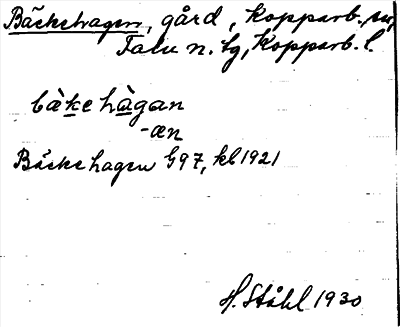 Bäckehagen, gård, Kopparb. sn,
Falu n. tg, Kopparb. l.
bàke hàgan
-an
Bäckehagen G97, kbl 1921
H. Ståhl 1930